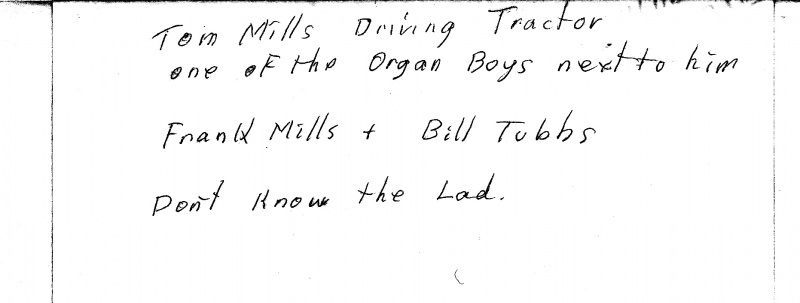 Tom Mills Driving Tractor
one of the Organ Boys next to him
Frank Mills + Bill Tubbs
Don't Know the Lad.